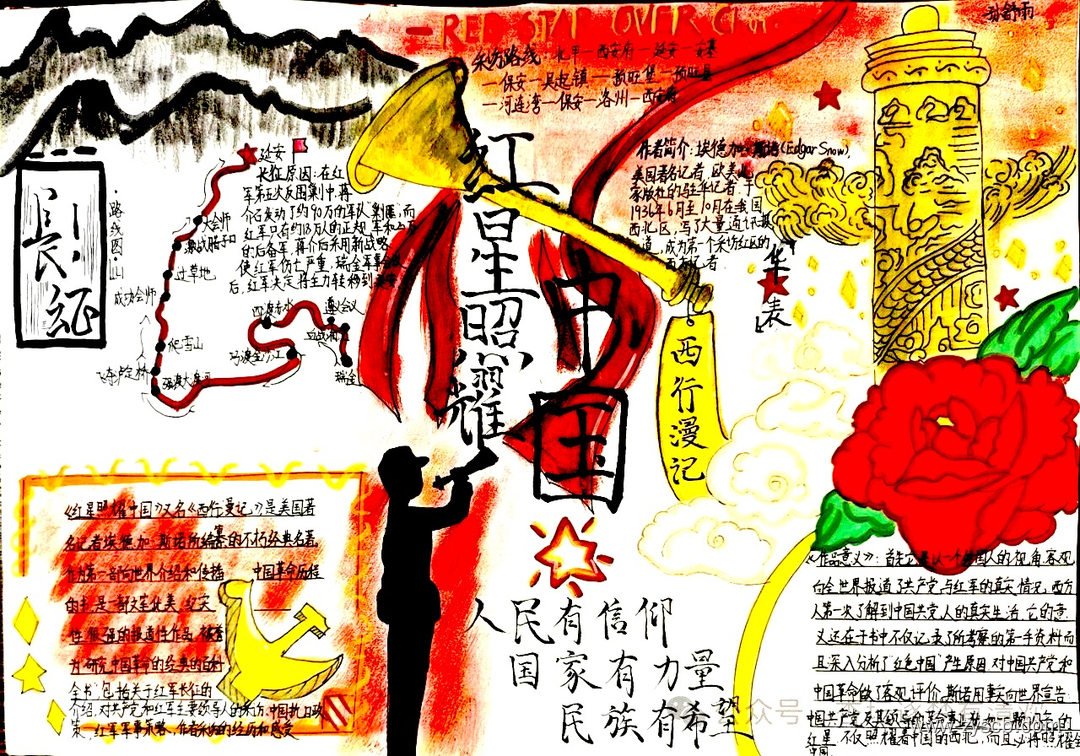 RED STAR OVER
采访路线：北平—西安府—延安—安塞
—保安—吴起镇—预旺堡—预旺县
—河连湾—保安—洛川—西安府
長征
路线图
延安
长征原因：在红
军第五次反围剿中，蒋
介石发动了约90万的军队围剿，而
红军只有约18万人的正规军和
的后备军，蒋介石采用新战略
使红军伤亡严重，瑞金军事会议
后，红军决定将主力转移到
大会师
激战腊子口
过草地
成功会师
爬雪山
飞夺泸定桥
强渡大渡河
四渡赤水
遵义会议
巧渡金沙江
瑞金
红星照耀
中国
西行漫记
作者简介：埃德加·斯诺(Edgar Snow),
美国著名记者，欧美
家报社的驻华记者，于
1936年6月至10月在我国
西北区，写了大量通讯报
道，成为第一个采访红区的
西方记者
华表
《红星照耀中国》又名《西行漫记》是美国著
名记者埃德加·斯诺所编纂的不朽经典名著，
作为第一部向世界介绍和传播 中国革命历程
的书，是一部文笔优美，纪实
性很强的报道性作品，被誉
为研究中国革命的经典的百科
全书，包括关于红军长征的
介绍，对共产党和红军主要领导人的采访，中国抗日政
策，红军军事策略，作者采访的经历和感受
人民有信仰
国家有力量
民族有希望
《作品意义》：首先它是从一个美国人的视角，客观
向全世界报道了共产党与红军的真实情况，西方
人第一次了解到中国共党人的真实生活，它的意
义还在于书中不仅记录了所考察的第一手资料而
且深入分析了“红色中国”产生原因，对中国共产党和
中国革命做了客观评价，斯诺用事实向世界宣告：
中国共产党及其领导的革命事业犹如一颗闪亮的
红星，不仅照耀着中国的西北，而且必将照耀全